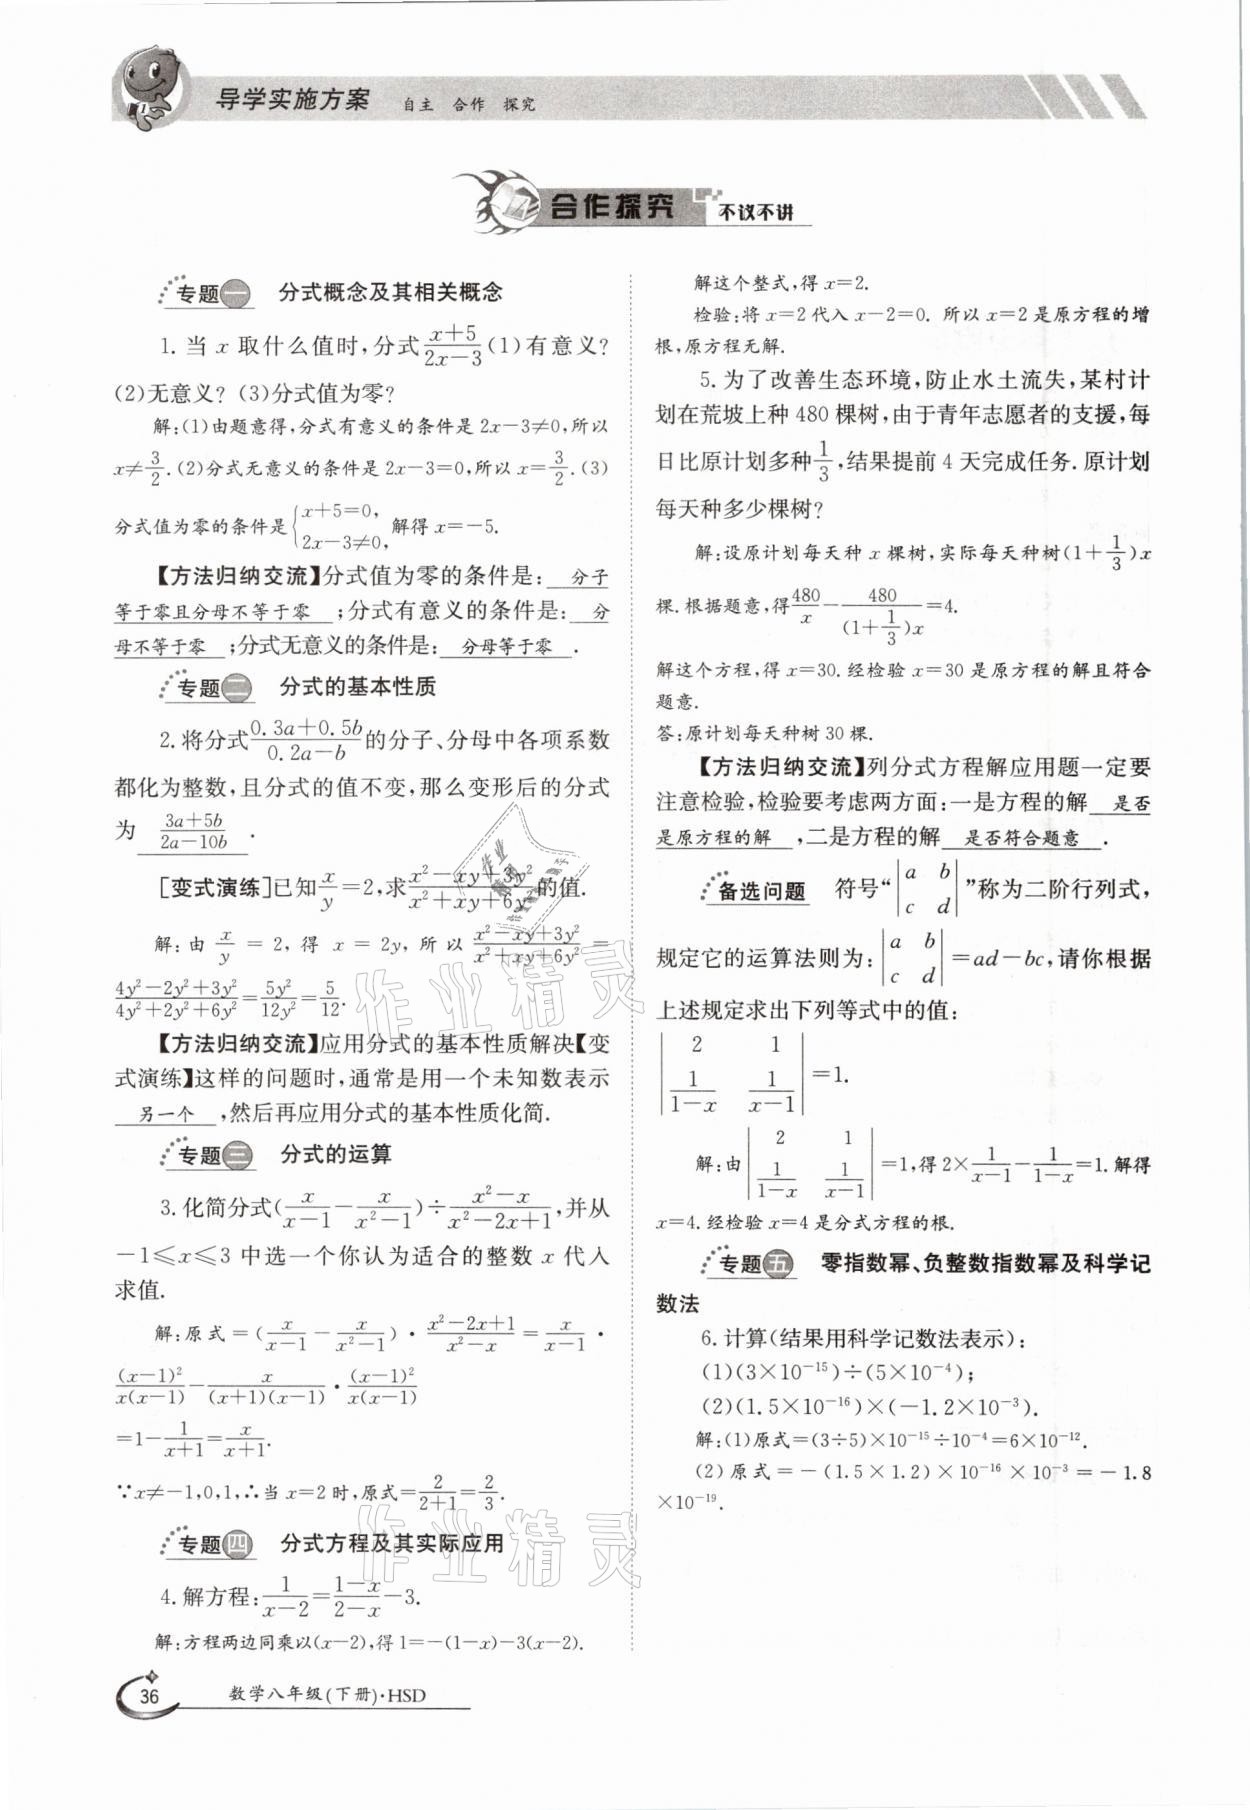 导学实施方案 自主 合作 探究
合作探究 不议不讲
专题一 分式概念及其相关概念
1. 当 x 取什么值时,分式(x+5)/(2x−3)(1)有意义?
(2)无意义? (3)分式值为零?
解:(1)由题意得,分式有意义的条件是 2x−3≠0,所以
x≠3/2. (2)分式无意义的条件是 2x−3=0,所以 x=3/2. (3)
分式值为零的条件是{x+5=0, 2x−3≠0, 解得 x=−5.
【方法归纳交流】分式值为零的条件是: 分子
等于零且分母不等于零 ;分式有意义的条件是: 分
母不等于零 ;分式无意义的条件是: 分母等于零 .
专题二 分式的基本性质
2. 将分式(0.3a+0.5b)/(0.2a−b)的分子、分母中各项系数
都化为整数,且分式的值不变,那么变形后的分式
为 (3a+5b)/(2a−10b) .
[变式演练]已知x/y=2,求(x²−xy+3y²)/(x²+xy+6y²)的值.
解:由 x/y = 2, 得 x = 2y, 所以 (x²−xy+3y²)/(x²+xy+6y²) =
(4y²−2y²+3y²)/(4y²+2y²+6y²)=5y²/12y²=5/12.
【方法归纳交流】应用分式的基本性质解决【变
式演练】这样的问题时,通常是用一个未知数表示
另一个 ,然后再应用分式的基本性质化简.
专题三 分式的运算
3. 化简分式(x/(x−1)−x/(x²−1))÷(x²−x)/(x²−2x+1),并从
−1≤x≤3 中选一个你认为适合的整数 x 代入
求值.
解:原式=(x/(x−1)−x/(x²−1))·(x²−2x+1)/(x²−x)=x/(x−1)·
(x−1)²/(x(x−1))−x/((x+1)(x−1))·(x−1)²/(x(x−1))
=1−1/(x+1)=x/(x+1).
∵x≠−1,0,1,∴当 x=2 时,原式=2/(2+1)=2/3.
专题四 分式方程及其实际应用
4. 解方程:1/(x−2)=(1−x)/(2−x)−3.
解:方程两边同乘以(x−2),得 1=−(1−x)−3(x−2).
36 数学八年级(下册)·HSD
解这个整式,得 x=2.
检验:将 x=2 代入 x−2=0. 所以 x=2 是原方程的增
根,原方程无解.
5. 为了改善生态环境,防止水土流失,某村计
划在荒坡上种 480 棵树,由于青年志愿者的支援,每
日比原计划多种1/3,结果提前 4 天完成任务.原计划
每天种多少棵树?
解:设原计划每天种 x 棵树,实际每天种树(1+1/3)x
棵.根据题意,得480/x−480/((1+1/3)x)=4.
解这个方程,得 x=30. 经检验 x=30 是原方程的解且符合
题意.
答:原计划每天种树 30 棵.
【方法归纳交流】列分式方程解应用题一定要
注意检验,检验要考虑两方面:一是方程的解 是否
是原方程的解 ,二是方程的解 是否符合题意 .
备选问题 符号“|a b; c d|”称为二阶行列式,
规定它的运算法则为:|a b; c d|=ad−bc,请你根据
上述规定求出下列等式中的值:
|2 1; 1/(1−x) 1/(x−1)|=1.
解:由|2 1; 1/(1−x) 1/(x−1)|=1,得 2×1/(x−1)−1/(1−x)=1. 解得
x=4. 经检验 x=4 是分式方程的根.
专题五 零指数幂、负整数指数幂及科学记
数法
6. 计算(结果用科学记数法表示):
(1)(3×10⁻¹⁵)÷(5×10⁻⁴);
(2)(1.5×10⁻¹⁶)×(−1.2×10⁻³).
解:(1)原式=(3÷5)×10⁻¹⁵÷10⁻⁴=6×10⁻¹².
(2)原式=−(1.5×1.2)×10⁻¹⁶×10⁻³=−1.8
×10⁻¹⁹.
作业精灵
作业精灵